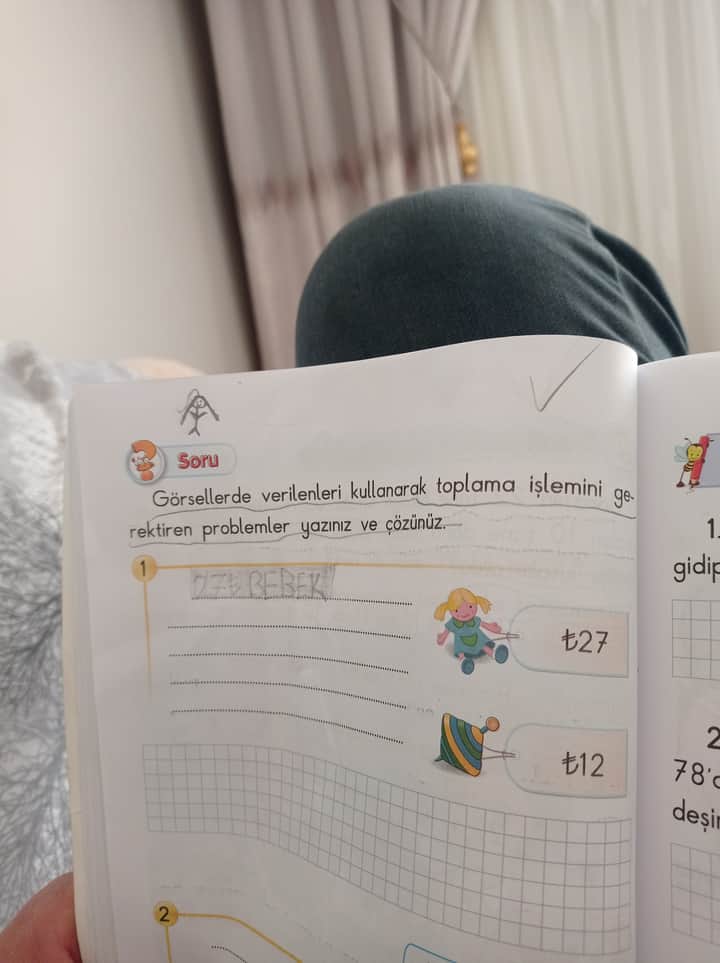 Soru
Görsellerde verilenleri kullanarak toplama işlemini ge-
rektiren problemler yazınız ve çözünüz.
1
27₺ BEBEK
₺27
₺12
2
1.
gidip
2
78'
deşir